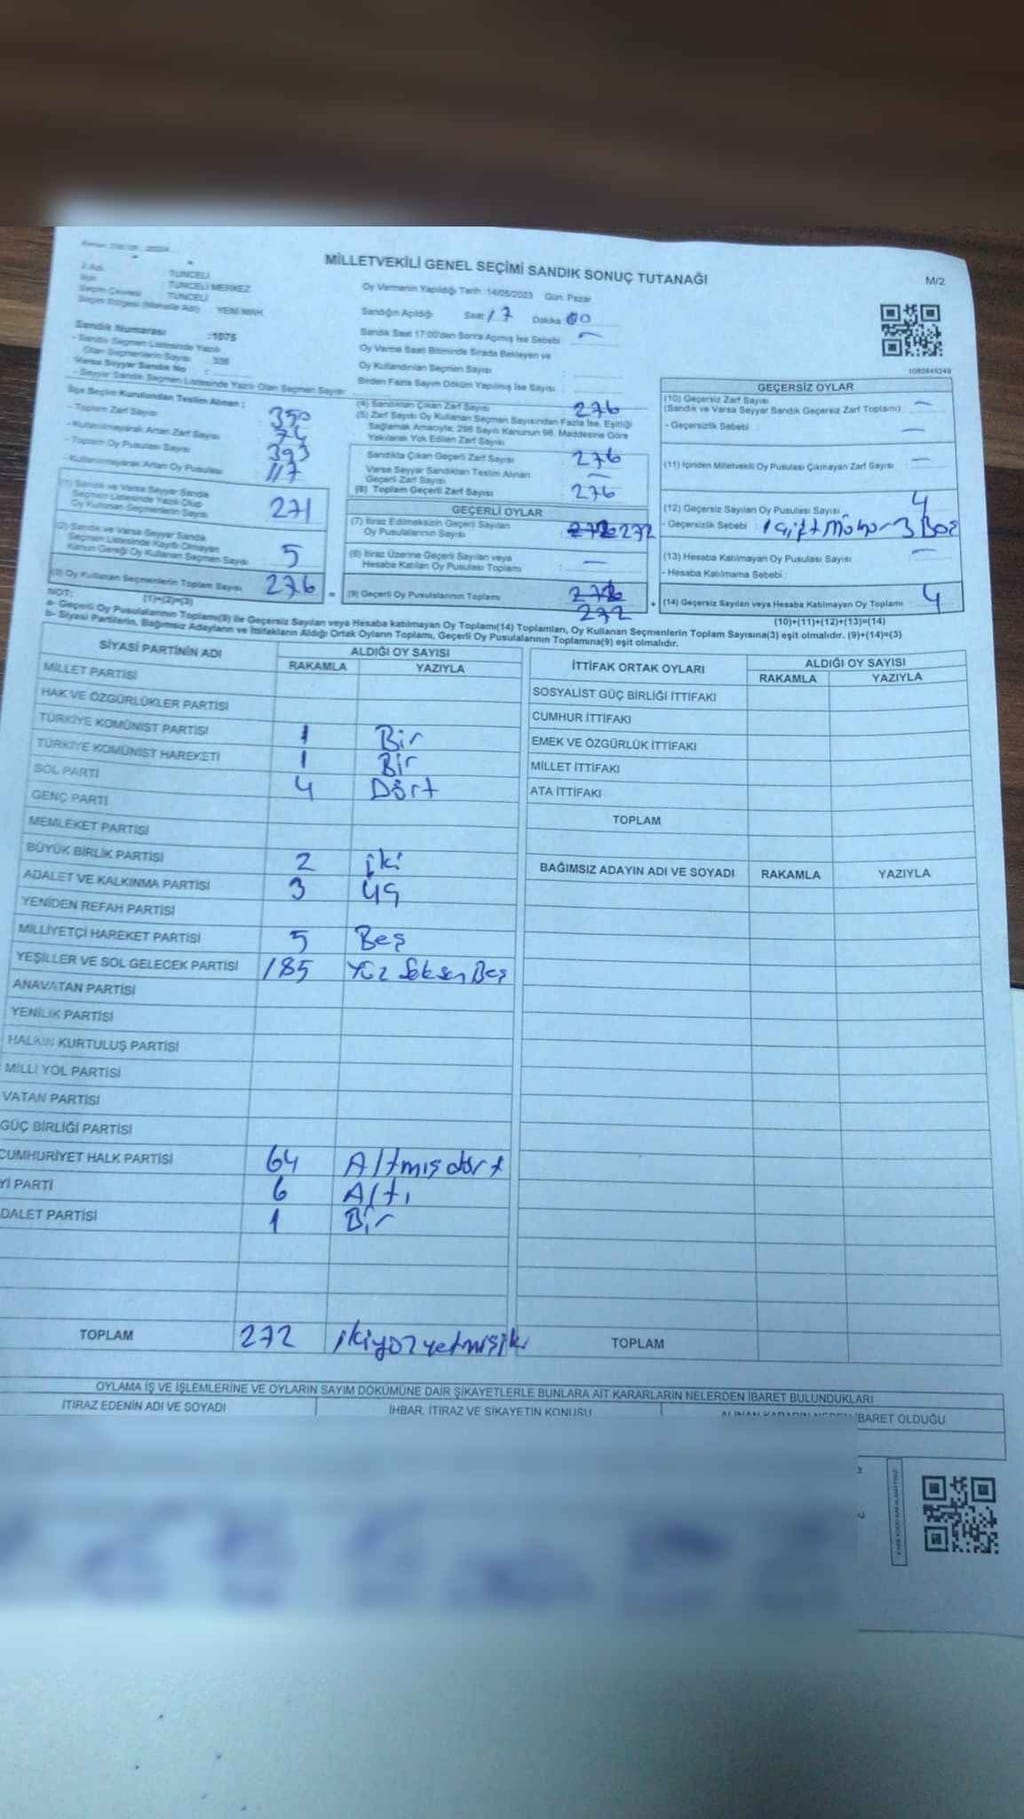 MİLLETVEKİLİ GENEL SEÇİMİ SANDIK SONUÇ TUTANAĞI
M/2
TUNCELİ
TUNCELİ MERKEZ
TUNCELİ
YENİ MAH.
Oy Vermenin Yapıldığı Tarih :14/05/2023 Gün: Pazar
Sandığın Açıldığı Saat 17 Dakika 00
Sandık Saat 17:00'den Sonra Açılmış İse Sebebi
Oy Verme Saati Bitiminde Sırada Bekleyen ve
Oy Kullandırılan Seçmen Sayısı
Birden Fazla Sayım Döküm Yapılmış İse Sayısı
Sandık Numarası :1075
- Sandık Seçmen Listesinde Yazılı
Olan Seçmenlerin Sayısı
Varsa Seyyar Sandık No :
- Seyyar Sandık Seçmen Listesinde Yazılı Olan Seçmen Sayısı
İlçe Seçim Kurulundan Teslim Alınan :
- Toplam Zarf Sayısı 350
- Kullanılmayarak Artan Zarf Sayısı 74
- Toplam Oy Pusulası Sayısı 393
- Kullanılmayarak Artan Oy Pusulası 117
(1) Sandık ve Varsa Seyyar Sandık
Seçmen Listesinde Yazılı Olup
Oy Kullanan Seçmenlerin Sayısı 271
(2) Sandık ve Varsa Seyyar Sandık
Seçmen Listesinde Kayıtlı Olmayan
Kanun Gereği Oy Kullanan Seçmen Sayısı 5
(3) Oy Kullanan Seçmenlerin Toplam Sayısı 276
(4) Sandıktan Çıkan Zarf Sayısı 276
(5) Zarf Sayısı Oy Kullanan Seçmen Sayısından Fazla İse, Eşitliği
Sağlamak Amacıyla; 298 Sayılı Kanunun 98. Maddesine Göre
Yakılarak Yok Edilen Zarf Sayısı
Sandıkta Çıkan Geçerli Zarf Sayısı 276
Varsa Seyyar Sandıktan Teslim Alınan
Geçerli Zarf Sayısı
(6) Toplam Geçerli Zarf Sayısı 276
GEÇERLİ OYLAR
(7) İtiraz Edilmeksizin Geçerli Sayılan
Oy Pusulalarının Sayısı 272
(8) İtiraz Üzerine Geçerli Sayılan veya
Hesaba Katılan Oy Pusulası Toplamı
(9) Geçerli Oy Pusulalarının Toplamı 272
GEÇERSİZ OYLAR
(10) Geçersiz Zarf Sayısı
(Sandık ve Varsa Seyyar Sandık Geçersiz Zarf Toplamı)
- Geçersizlik Sebebi :
(11) İçinden Milletvekili Oy Pusulası Çıkmayan Zarf Sayısı
(12) Geçersiz Sayılan Oy Pusulası Sayısı 4
- Geçersizlik Sebebi 1 Çift Mühür 3 Boş
(13) Hesaba Katılmayan Oy Pusulası Sayısı
- Hesaba Katılmama Sebebi
(14) Geçersiz Sayılan veya Hesaba Katılmayan Oy Toplamı 4
NOT: (1)+(2)=(3) (10)+(11)+(12)+(13)=(14)
a- Geçerli Oy Pusulalarının Toplamı(9) ile Geçersiz Sayılan veya Hesaba katılmayan Oy Toplamı(14) Toplamları, Oy Kullanan Seçmenlerin Toplam Sayısına(3) eşit olmalıdır. (9)+(14)=(3)
b- Siyasi Partilerin, Bağımsız Adayların ve İttifakların Aldığı Ortak Oyların Toplamı, Geçerli Oy Pusulalarının Toplamına(9) eşit olmalıdır.
SİYASİ PARTİNİN ADI ALDIĞI OY SAYISI
RAKAMLA YAZIYLA
MİLLET PARTİSİ
HAK VE ÖZGÜRLÜKLER PARTİSİ
TÜRKİYE KOMÜNİST PARTİSİ 1 Bir
TÜRKİYE KOMÜNİST HAREKETİ 1 Bir
SOL PARTİ 4 Dört
GENÇ PARTİ
MEMLEKET PARTİSİ
BÜYÜK BİRLİK PARTİSİ 2 iki
ADALET VE KALKINMA PARTİSİ 3 üç
YENİDEN REFAH PARTİSİ
MİLLİYETÇİ HAREKET PARTİSİ 5 Beş
YEŞİLLER VE SOL GELECEK PARTİSİ 185 Yüz Seksen Beş
ANAVATAN PARTİSİ
YENİLİK PARTİSİ
HALKIN KURTULUŞ PARTİSİ
MİLLİ YOL PARTİSİ
VATAN PARTİSİ
GÜÇ BİRLİĞİ PARTİSİ
CUMHURİYET HALK PARTİSİ 64 Altmışdört
Yİ PARTİ 6 Altı
DALET PARTİSİ 1 Bir
TOPLAM 272 ikiyüzyetmişiki
İTTİFAK ORTAK OYLARI ALDIĞI OY SAYISI
RAKAMLA YAZIYLA
SOSYALİST GÜÇ BİRLİĞİ İTTİFAKI
CUMHUR İTTİFAKI
EMEK VE ÖZGÜRLÜK İTTİFAKI
MİLLET İTTİFAKI
ATA İTTİFAKI
TOPLAM
BAĞIMSIZ ADAYIN ADI VE SOYADI RAKAMLA YAZIYLA
TOPLAM
OYLAMA İŞ VE İŞLEMLERİNE VE OYLARIN SAYIM DÖKÜMÜNE DAİR ŞİKAYETLERLE BUNLARA AİT KARARLARIN NELERDEN İBARET BULUNDUKLARI
İTİRAZ EDENİN ADI VE SOYADI İHBAR, İTİRAZ VE ŞİKAYETİN KONUSU ALINAN KARARIN NEDEN İBARET OLDUĞU